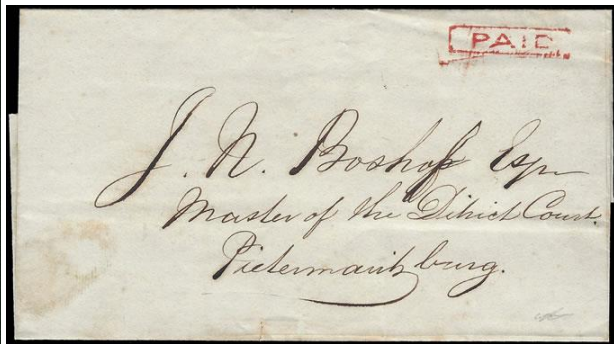 PAID
J. N. Boshof Esqr
Master of the District Court.
Pietermaritzburg.